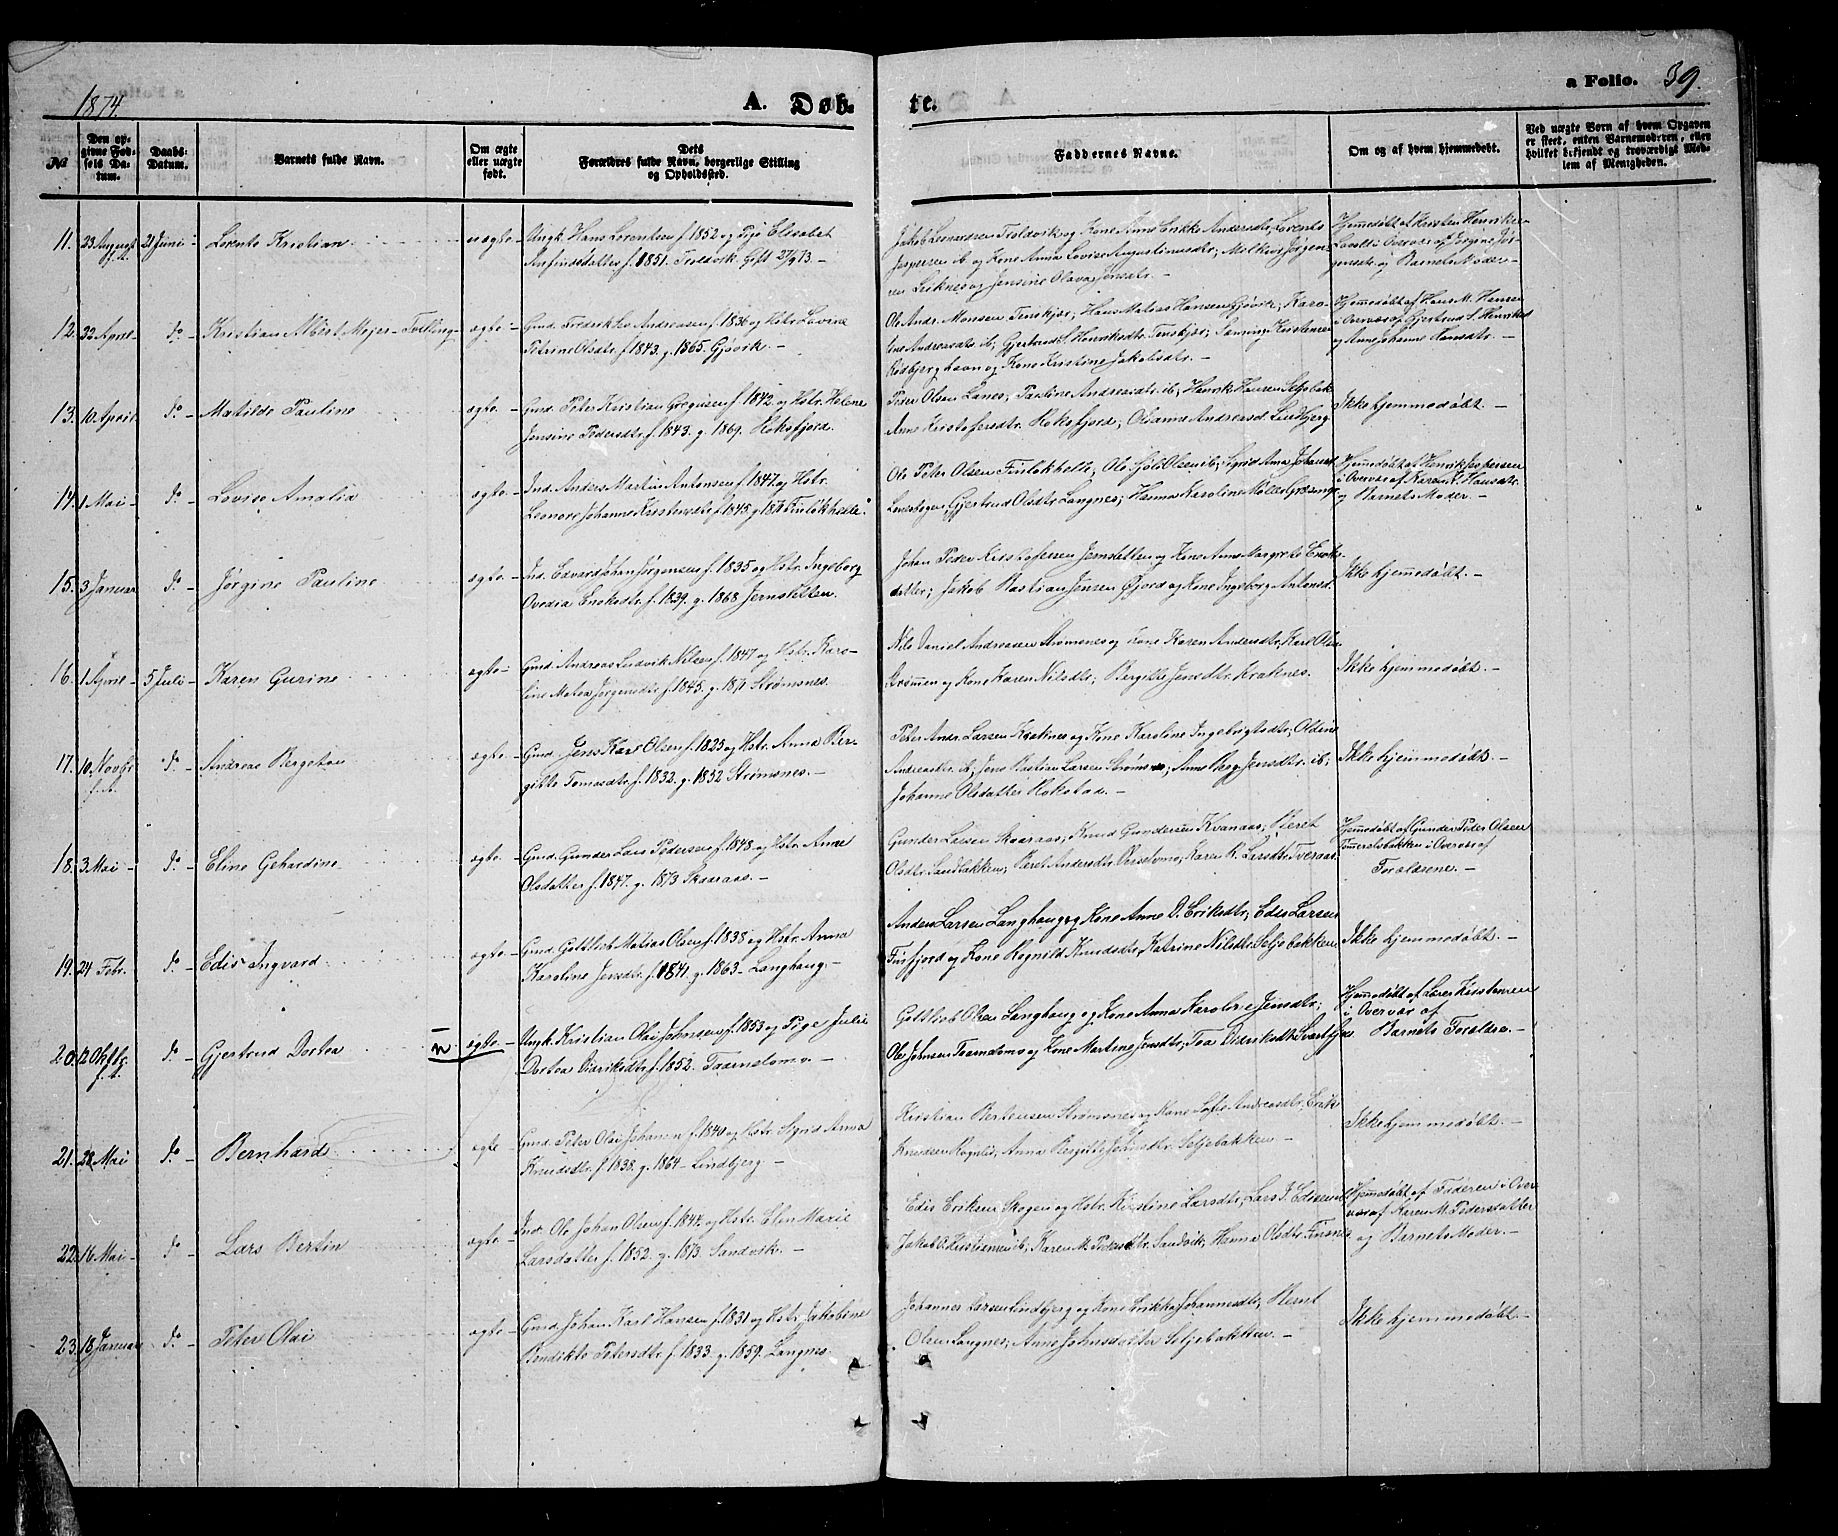 1874.
A. Døb-
te.
a Folio. 39.
No
Den op-
givne Fød-
sels Da-
tum.
Daabs-
Datum.
Barnets fulde Navn.
Om ægte
eller uægte
født.
Dets
Forældres fulde Navn, borgerlige Stilling
og Opholdssted.
Faddernes Navne.
Om og af hvem hjemmedøbt.
Ved uægte Børn af hvem Opgaven
er skeet, enten Barnemoderen, eller
hvilket bekjendt og troværdigt Med-
lem af Menigheden.
11. 23 August f.A. 21 Juni Lorents Kristian uægte
Ungk. Hans Lorentsen f. 1852 og Pige Elisabet
Anfindsdatter f. 1851. Troldvik. Gift 27/9 73 –
Jakob Leonardsen Troldvik og Kone Anne Birkke Andersdtr, Lorents
Jespersen ib og Kone Anna Lovise Augustinusdtr; Melkior Jørgen-
sen Leiknes og Jensine Olava Jensdtr. –
Hjemmedøbt af Kristen Henriksen
i Overvær af Jørgine Jør-
gensdtr. og Barnets Moder –
12. 22 April do Kristian Albert Mejer – Tvilling ægte
Gmd. Fredrik Andreasen f. 1836 og Hstr. Lovine
Petrine Olsdtr. f. 1843. g. 1865. Gjøvik. –
Ole Andr. Monsen Finskjær; Hans Matias Hansen Gjøvik; Karo-
line Andreasdtr. ib; Gjertrud S. Henriksdtr. Finskjær; Henning Kristensen
Rødbjerghavn og Kone Kristine Jakobsdtr. –
Hjemmedøbt af Hans M. Hansen
i Overvær af Gjertrud S. Henriksd
og Anne Johanne Hansdtr. –
13. 10 April do Matilde Pauline ægte
Gmd. Peter Kristian Gregusen f. 1842 og Hstr. Helene
Jensine Pedersdtr. f. 1843. g. 1869. Hoksfjord.
Peder Olsen Lanes; Pauline Andreasdtr. ib; Henrik Hansen Seljebak
Anne Kristofersdtr. Hoksfjord; Olianna Andreasd Lindbjerg
Ikke hjemmedøbt –
14. 1 Mai do Lovise Amalia ægte
Ind. Anders Martin Antonsen f. 1847 og Hstr.
Leonore Johanne Kristensdtr f. 1845. g. Finlokhella.
Ole Peter Olsen Finlokhella; Ole Sjøli Olsen ib; Sigrid Anna Johansd
Gjertrud Olsdtr. Langnes; Hanna Karoline Møller
Hjemmedøbt af Henrik Jespersen
i Overvær af Karen K. Hansdtr.
og Barnets Moder –
15. 3 Januar do Jørgine Pauline ægte
Ind. Edvard Johan Jørgensen f. 1835 og Hstr. Ingeborg
Ovedia Enoksdtr. f. 1839. g. 1868 Jernsletten.
Johan Peder Kristofersen Jernsletten og Kone Anne Margrete Enoks-
datter; Jakob Bastian Jensen Øjord og Kone Ingeborg Antonsd.
Ikke hjemmedøbt. –
16. 1 April 5 Juli Karen Gurine ægte
Gmd. Andreas Ludvik Nilsen f. 1847 og Hstr. Karo-
line Matea Jørgensdtr. f. 1845. g. 1871 Strømsnes.
Nils Daniel Andreassen Strømsnes og Kone Karen Andersdtr, Karl Olsen
Strømmen og Kone Karen Nilsdtr; Bergitte Jensdtr. Kraknes.
Ikke hjemmedøbt –
17. 10 Novbr f.A. do Andreas Bergeton ægte
Gmd. Jens Karl Olsen f. 1825 og Hstr. Anna Ber-
gitte Tomasdtr. f. 1832. g. 1852 Strømsnes. –
Peter Andr. Larsen Kraknes og Kone Karoline Ingebrigtsdtr, Oldine
Andreasdtr. ib; Jens Bastian Larsen Strømsnes; Anne Berg. Jensdtr. ib;
Johanne Olsdatter Hokstad. –
Ikke hjemmedøbt –
18. 3 Mai do Eline Gehardine ægte
Gmd. Gunder Lars Pedersen f. 1848 og Hstr. Anne
Olsdatter f. 1847. g. 1873 Skaaraas. –
Gunder Larsen Skaaraas; Knud Gundersen Kvanaas; Beret
Olsdtr. Sandbakken; Beret Andersdtr. Karen R. Larsdtr. Tveraas.
Hjemmedøbt af Gunder Peder Olsen
Tømmeraasbakken i Overvær af
Forældrene. –
19. 24 Febr. do Edis Ingvard ægte
Gmd. Gottlieb Matias Olsen f. 1838 og Hstr. Anna
Karoline Jensdtr. f. 1841. g. 1863 – Langhaug. –
Anders Larsen Langhaug og Kone Anne D. Eriksdtr; Edis Larsen
Finfjord og Kone Rognild Knudsdtr, Katrine Nilsdtr Seljebakken
Ikke hjemmedøbt –
20. 12 Oktbr. f.A. do Gjertrud Dortea u ægte
Ungk. Kristian Olai Johnsen f. 1853 og Pige Julie
Dortea Didriksdtr. f. 1852. Taarnelomo –
Gottlieb Olsen Langhaug og Kone Anna Karoline Jensdtr;
Ole Johnsen Taarnelomo og Kone Martine Jensdtr; Tea Didriksdtr
Hjemmedøbt af Lærer Kristensen
i Overvær af
Barnets Forældre. –
21. 28 Mai do Bernhard ægte
Gmd. Peter Olai Johansen f. 1840 og Hstr. Sigrid Anna
Knudsdtr. f. 1838. g. 1864 – Lindbjerg –
Kristian Bertensen Strømsnes og Kone Sofie Andreasdtr; Erik
Knudsen Rognlid; Anna Bergitte Jensdtr. Seljebakken –
Ikke hjemmedøbt. –
22. 16 Mai do Lars Bertin ægte
Ind. Ole Johan Olsen f. 1844. og Hstr. Elen Marie
Larsdatter f. 1852. g. 1873 Sandvik. –
Edis Eriksen Skogen og Hstr. Kirstine Larsdtr; Lars J. Edissen
Jakob A. Kristensen ib; Karen M. Pedersdtr. Sandvik, Hanna Olsdtr. Finsnes
Hjemmedøbt af Faderen i Over-
vær af Karen M. Pedersdatter
og Barnets Moder. –
23. 18 Januar do Peter Olai ægte
Gmd. Johan Karl Hansen f. 1831 og Hstr. Jakobine
Bendikte Petersdtr. f. 1833. g. 1859. Langnes.
Johannes Larsen Lindbjerg og Kone Birkke Johannesdtr; Bernt
Olsen Langnes; Anne Johnsdatter Seljebakken. –
Ikke hjemmedøbt –